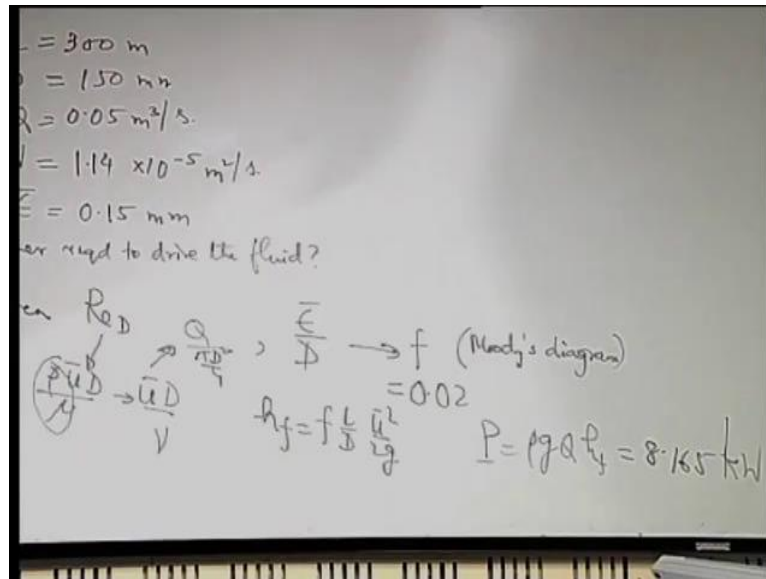 = 300 m
= 150 mm
Q = 0.05 m³/s.
= 1.14 × 10⁻⁵ m²/s.
ε̅ = 0.15 mm
er reqd to drive the fluid?
Re_D Q/(πD²/4) , ε̅/D → f (Moody's diagram)
= 0.02
ρu̅D/μ → u̅D/ν h_f = f L/D u̅²/2g P = ρgQh_f = 8.165 kW